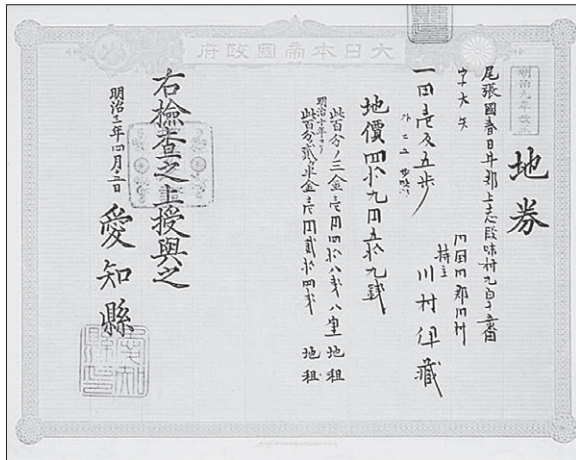 大日本帝國政府
明治九年改正
地券
尾張國春日井郡上志段味村九百十番
字大矢
同国同郡同村
持主 川村伊藏
一田壱反五歩
地價四拾九円五拾九銭
此百分ノ三金壱円四拾八銭八厘 地租
明治十年ヨリ
此百分ノ貳半金壱円貳拾四銭 地租
右檢査之上授與之
明治 年四月 日
愛知縣
愛知縣印